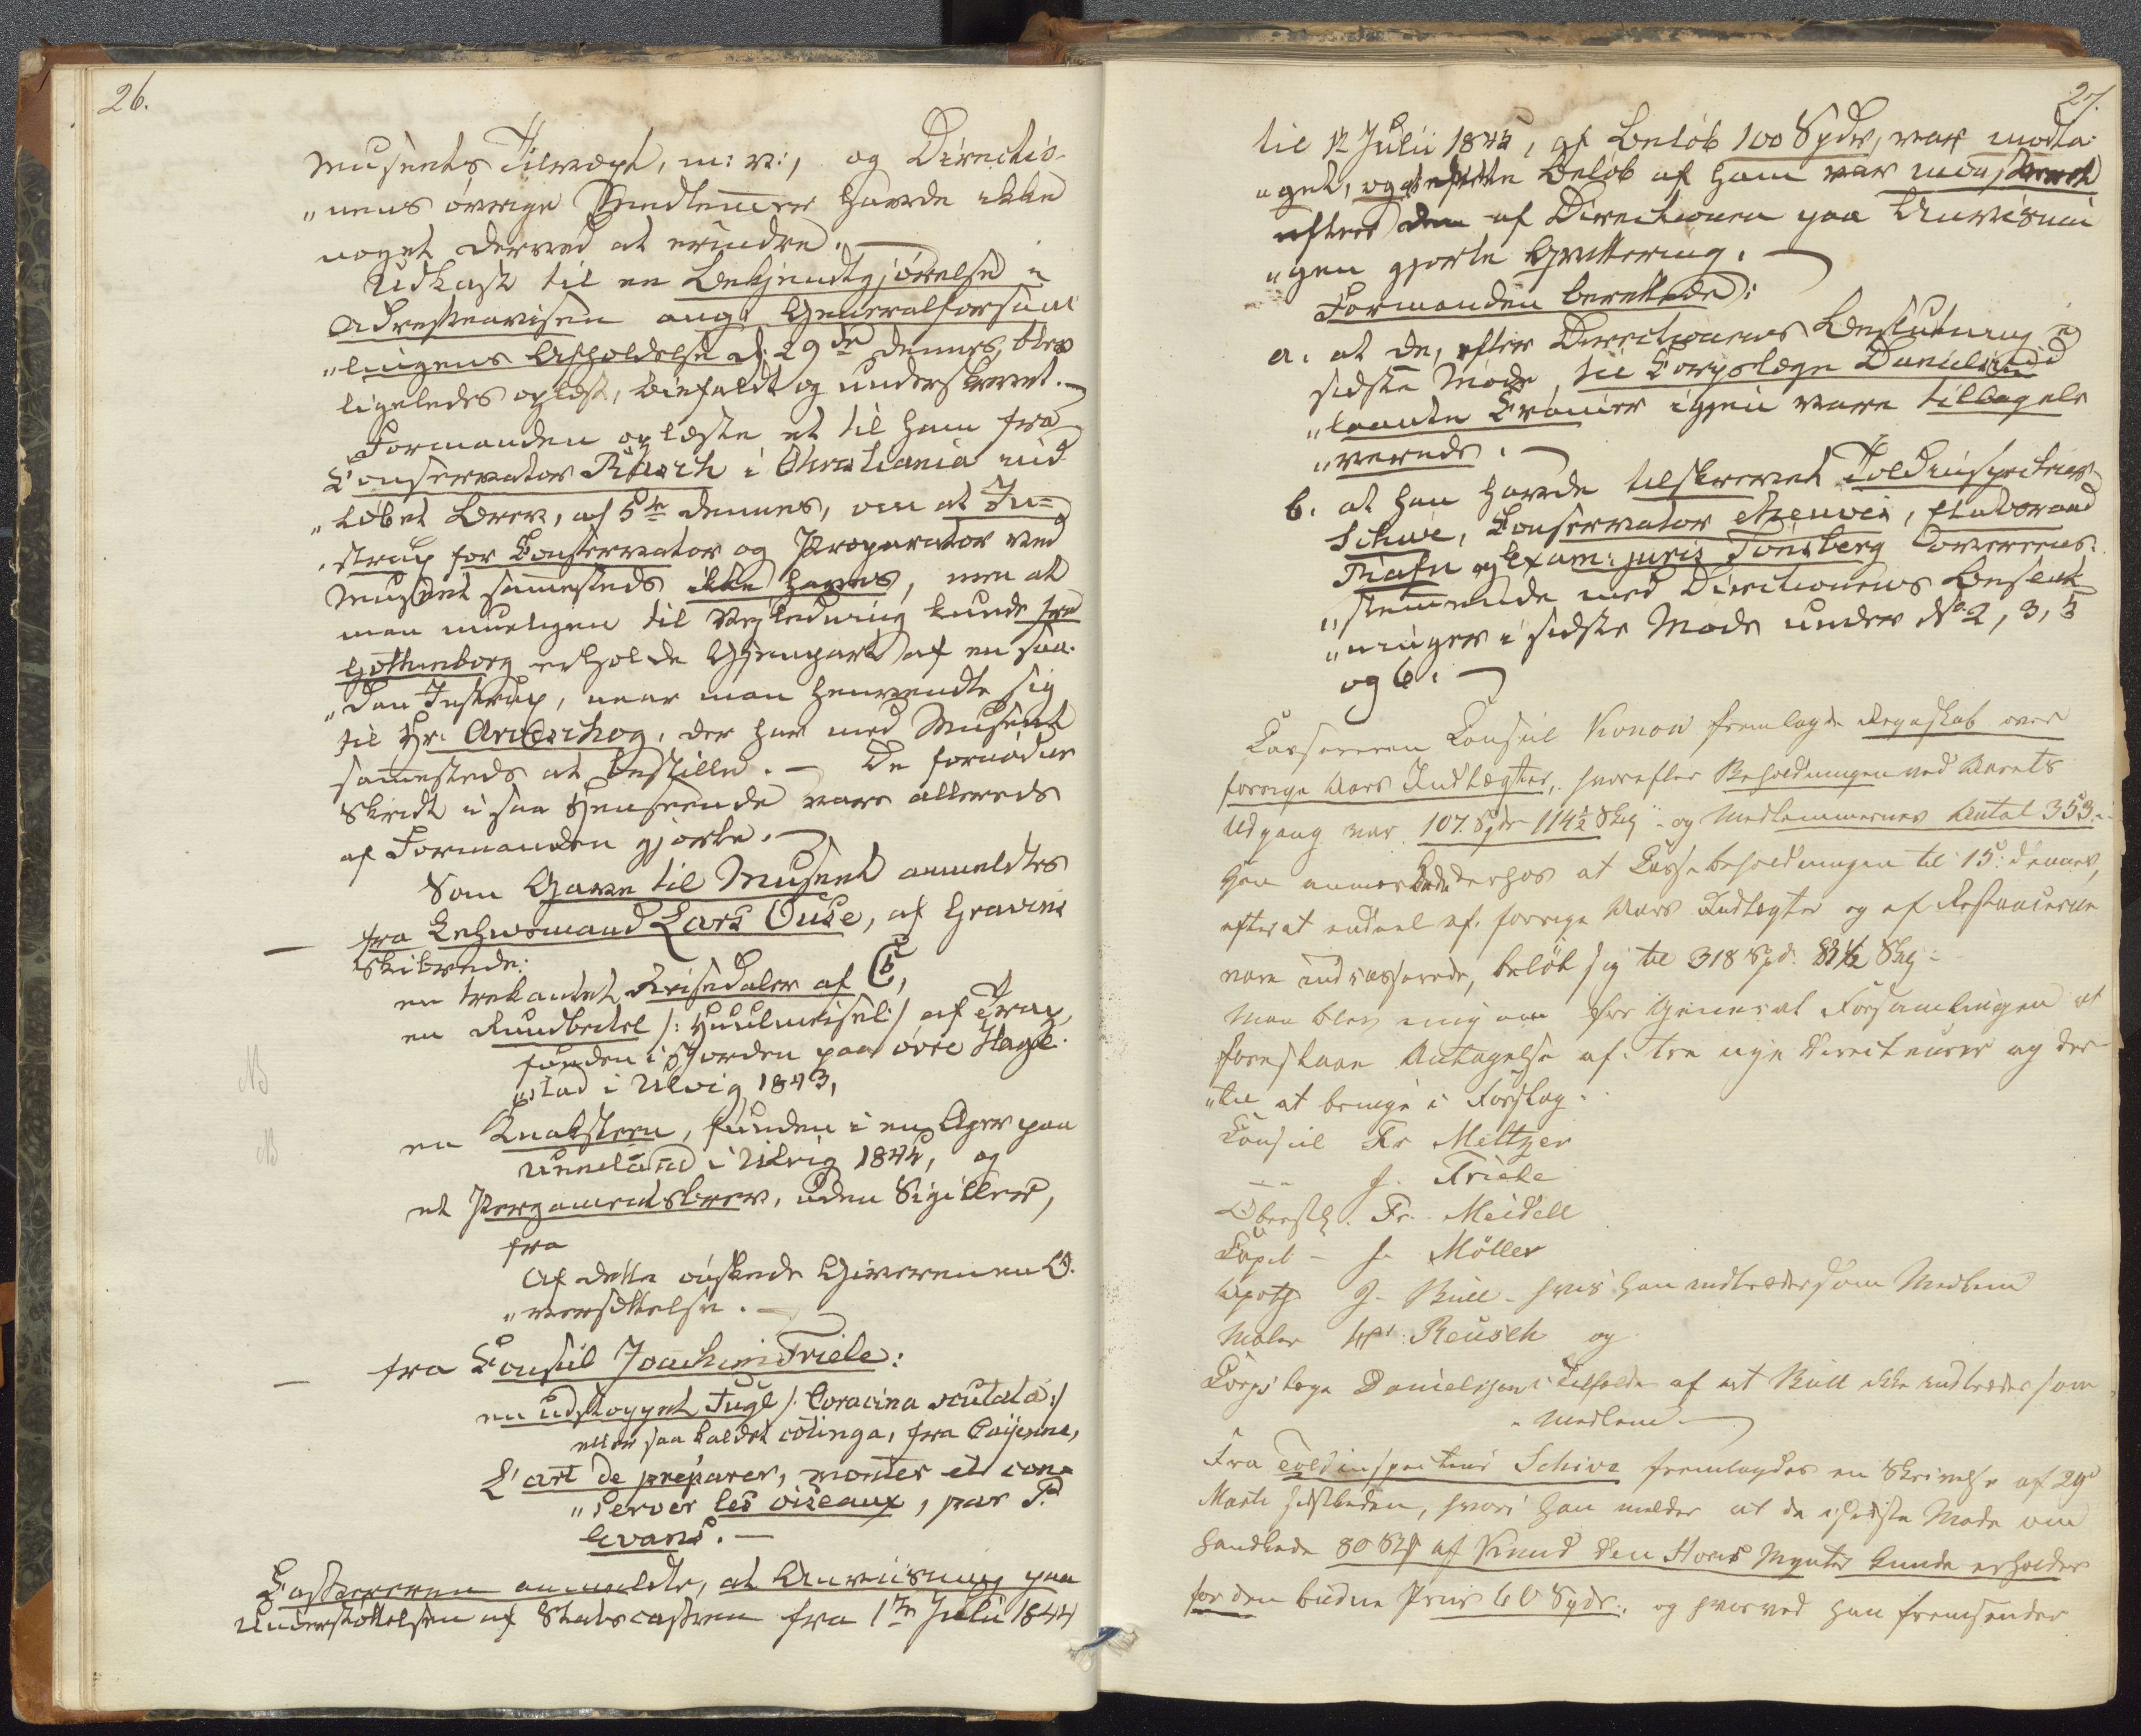 26.
Museets Tilvæxt, m: v:, og Directio-
"nens øvrige Medlemmer havde ikke
noget derved at erindre.
Udkast til en Bekjendtgjørelse i
Adresseavisen ang: Generalforsam
"lingens Afholdelse d: 29de dennes, blev
ligeledes oplæst, bifaldt og underskrevet.
Formanden oplæste et til ham fra
Conservator Rasch i Christiania ind
"løbet Brev, af 5te dennes, om at In-
"strux for Conservator og Præparator ved
Museet sammesteds ikke haves, men at
man mueligen til Vejledning kunde fra
Gothenborg erholde Gjenpart af en saa-
"dan Instrux, naar man henvendte sig
til Hr: Arvidschog, der har med Museet
sammesteds at bestille. – De fornødne
Skridt i saa Henseende vare allerede
af Formanden gjorte.
Som Gave til Museet anmeldtes
fra Lehnsmand Lars Ouse, af Gravens
Skibrede:
en trekantet Krisedaler af C5,
en Rundbeitel /: Huulmeisel :/ af Trap,
funden i Jorden paa øvre Hage-
"stad i Ulvig 1843,
en Knaksteen, funden i en Ager paa
Unneland i Ulvig 1844, og
et Pergamentsbrev, uden Sigiller,
fra
Af dette ønskede Giveren en O-
"versættelse.
fra Consul Joachim Friele:
en udstoppet Fugl /: Coracina scutata :/
eller saa kaldet cotinga, fra Caÿenne,
L'art de préparer, monter et con-
"server les oiseaux, par P.
Evans.
Cassereren anmeldte, at Anviisning paa
Understøttelsen af Statscassen fra 1te Julii 1844
27.
til 1te Julii 1845, af Beløb 100 Spdr, var modta-
"get, og at dette Beløb af ham var
efter den af Directionen paa Anviisnin
"gen gjorte Qvittering.
Formanden berettede:
a. at de, efter Directionens Beslutning i
sidste Møde, til Corpslæge Danielsen ud
"laante Cranier igjen vare tilbagele
"verede.
b. at han havde tilskrevet Toldinspecteur
Schive, Conservator, Etatsraad
Rafn og Exam: juris Tønsberg overeens-
"stemmende med Directionens Beslut
"ninger i sidste Møde under No 2, 3, 5
og 6.
Cassereren Consul Konow fremlagde Regnskab over
forrige Aars Indtægter, hvorefter Beholdningen ved Aarets
Udgang var 107 Spdr 114½ Skg – og Medlemmernes Antal 353.
Han anmærkede derhos at Cassebeholdningen til 15de dennes,
efter at endeel af forrige Aars Indtægter og af Restancerne
vare indcasserede, beløb sig til 318 Spd. 83½ Skg –
Man blev enig om for General Forsamlingen at
foreslaae Antagelse af tre nye Directeurer og der-
"til at bringe i Forslag.
Consul Fr Meltzer
– „ J. Friele
Oberstl. Fr. Meidell
Capt – J. Möller
Apoth J. Bull – hvis han indtræder som Medlem
Maler Reusch og
Corpslæge Danielssen i Tilfælde af at Bull ikke indtræder som
"Medlem
Fra Toldinspecteur Schive fremlagdes en Skrivelse af 29d
Marti sidstleden, hvori han melder at de i sidste Møde om
handlede 80 Stk af Knud den Stores Mynter kunde erholdes
for den budne Priis 60 Spdr., og hvorved han fremsender